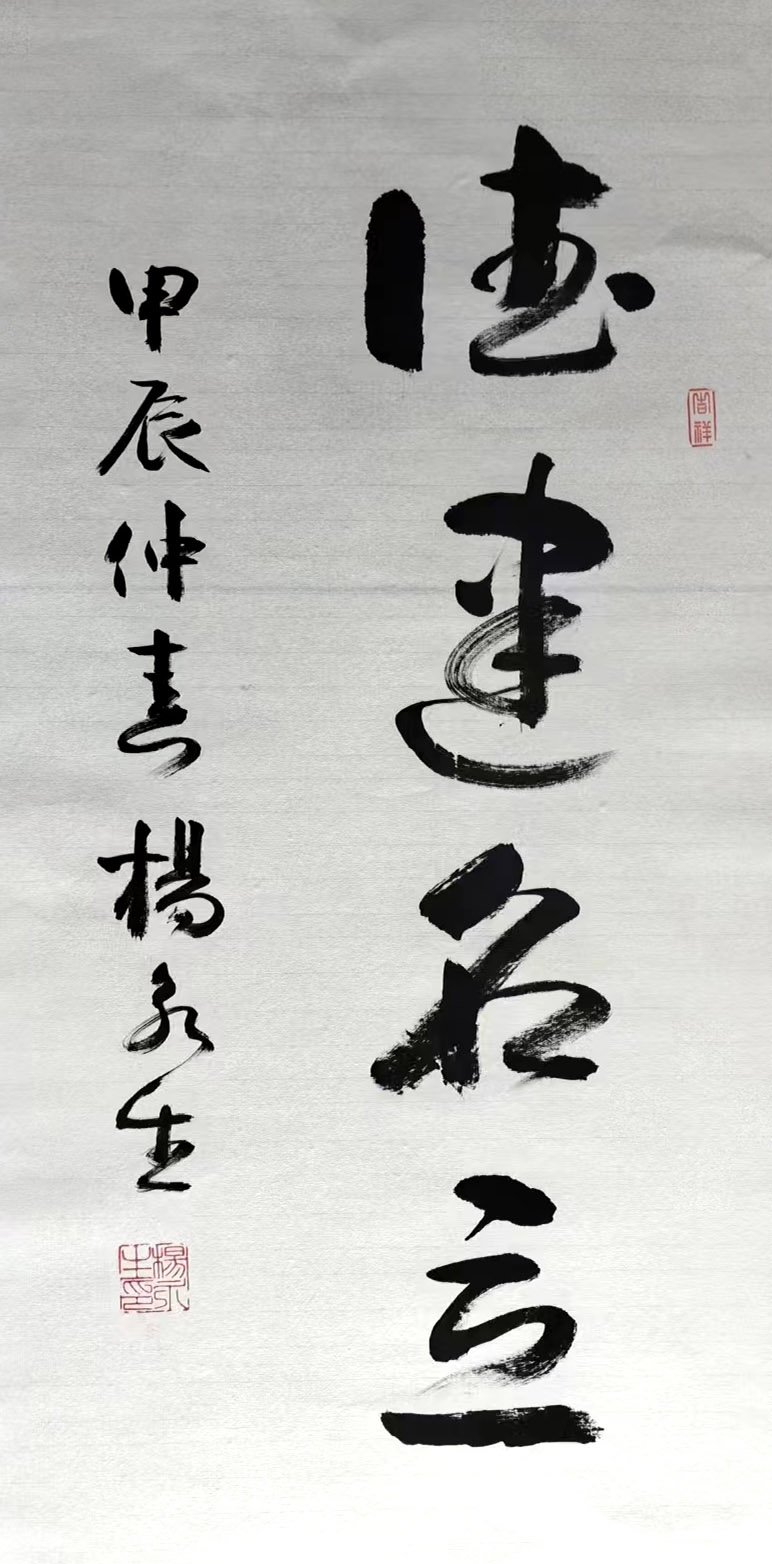 德建名立
吉祥
甲辰仲喜楊永生
楊永生印